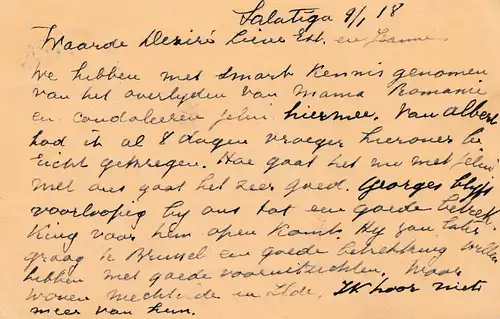 Salatiga 9/1 18
Waarde Deziré Lieve Est. en Jeanne
We hebben met smart kennis genomen
van het overlyden van Mama Romanie
en condoleeren jelui hiermee. Van Albert
had ik al 8 dagen vroeger hierover be
richt gekregen. Hoe gaat het nu met jelui
met ons gaat het zeer goed. Georges blyft
voorloopig by ons tot een goede betrek
king voor hem open komt. Hy zou later
graag te Brussel een goede betrekking willen
hebben met goede vooruitzichten. Waar
wonen en Ilde. Ik hoor niets
meer van hen.